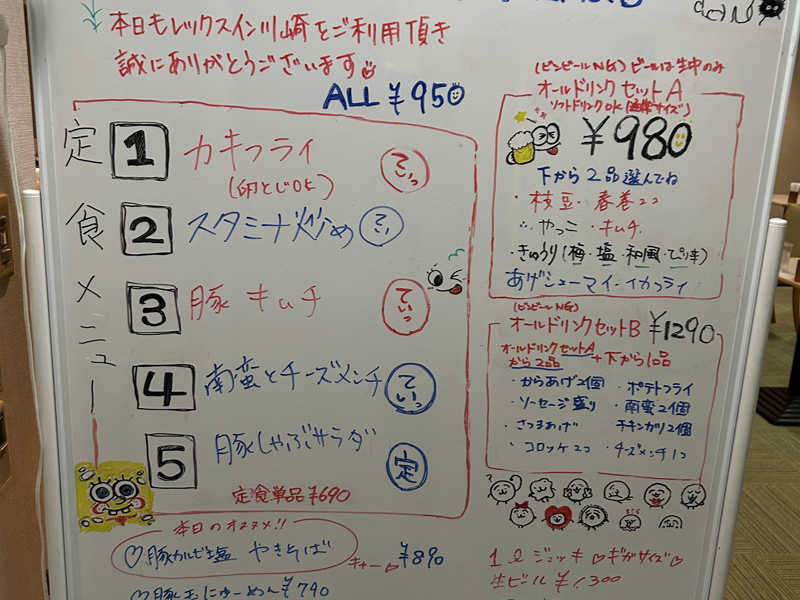 本日もレックスイン川崎をご利用頂き
誠にありがとうございます
ALL ¥950
定食メニュー
1 カキフライ ていっ
(卵とじOK)
2 スタミナ炒め てい
3 豚キムチ ていっ
4 南蛮とチーズメンチ ていっ
5 豚しゃぶサラダ 定
定食単品¥690
本日のオススメ!!
♡豚カルビ塩 やきそば ¥890
♡豚 ¥790
(ビンビールNG) ビールは生中のみ
オールドリンクセットA
ソフトドリンクOK(通常サイズ)
¥980
下から2品選んでね
・枝豆・春巻2コ
・やっこ・キムチ
・きゅうり(梅・塩・和風・ピリ辛)
あげシューマイ・イカフライ
(ビンビールNG)
オールドリンクセットB ¥1290
オールドリンクセットA
から2品 + 下から1品
・からあげ2個 ・ポテトフライ
・ソーセージ盛り ・南蛮2個
・さつまあげ チキンカツ2個
・コロッケ2コ ・チーズメンチ1コ
1ℓジョッキ♡ギガサイズ♡
生ビール ¥1,300